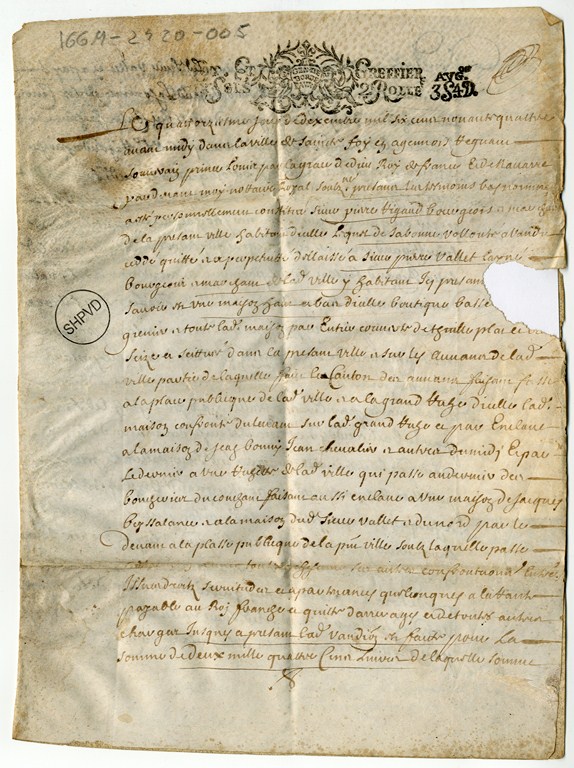 166M-2920-005
GREFFIER AVG.on
SOLS 2 ROLLE 3S4D.
SHPVD
Le quatorziesme jour de dexembre mil six cens nonante quattre
avant midy dans la ville de Sainte foy en agenois Regnant
Souverain prince Louis par la grace de dieu Roy de france Et de Navarre
par devant moy nottaire Royal Soub.ne presans les tesmoins bas nommes
a este personnellement constitue Sieur pierre Rigaud bourgeois e marchan
de la presant ville habitant d'icelle Lequel de sa bonne vollonté a vandu
cedde quitté e a perpetuité delaissé a Sieur pierre Vallet
bourgeois e marchant de lad ville y habitant Icy presant
Scavoir est une maison haute e basse d'icelle boutique basse
grenier e toute lad maison par Entier couverte de thuille plac
dans la presant ville e sur les de lad
ville partie de laquelle faict le Canton des faisant
a la place publique de lad ville e a la grand Rue d'icelle lad
maison confronte du levant sur lad grand Rue e par Enclave
a la maison de Jean bonny Jean chevalier e autres du midy E par
Le dernier a une de lad ville qui passe au dernier des
du couchant faisant aussi enclave a une maison de Jacques
bessalance e a la maison dud Sieur Vallet e du nord par le
devant a la place publique de la pnt ville soubz laquelle passe
sur autres confrontaons
servitudes e apartenances quelconques
payable au Roy franche e quitte d'arrerages e de touts autres
charges Jusques a presant lad vandition est faite pour La
somme de deux mille quattre Cens livres de laquelle somme